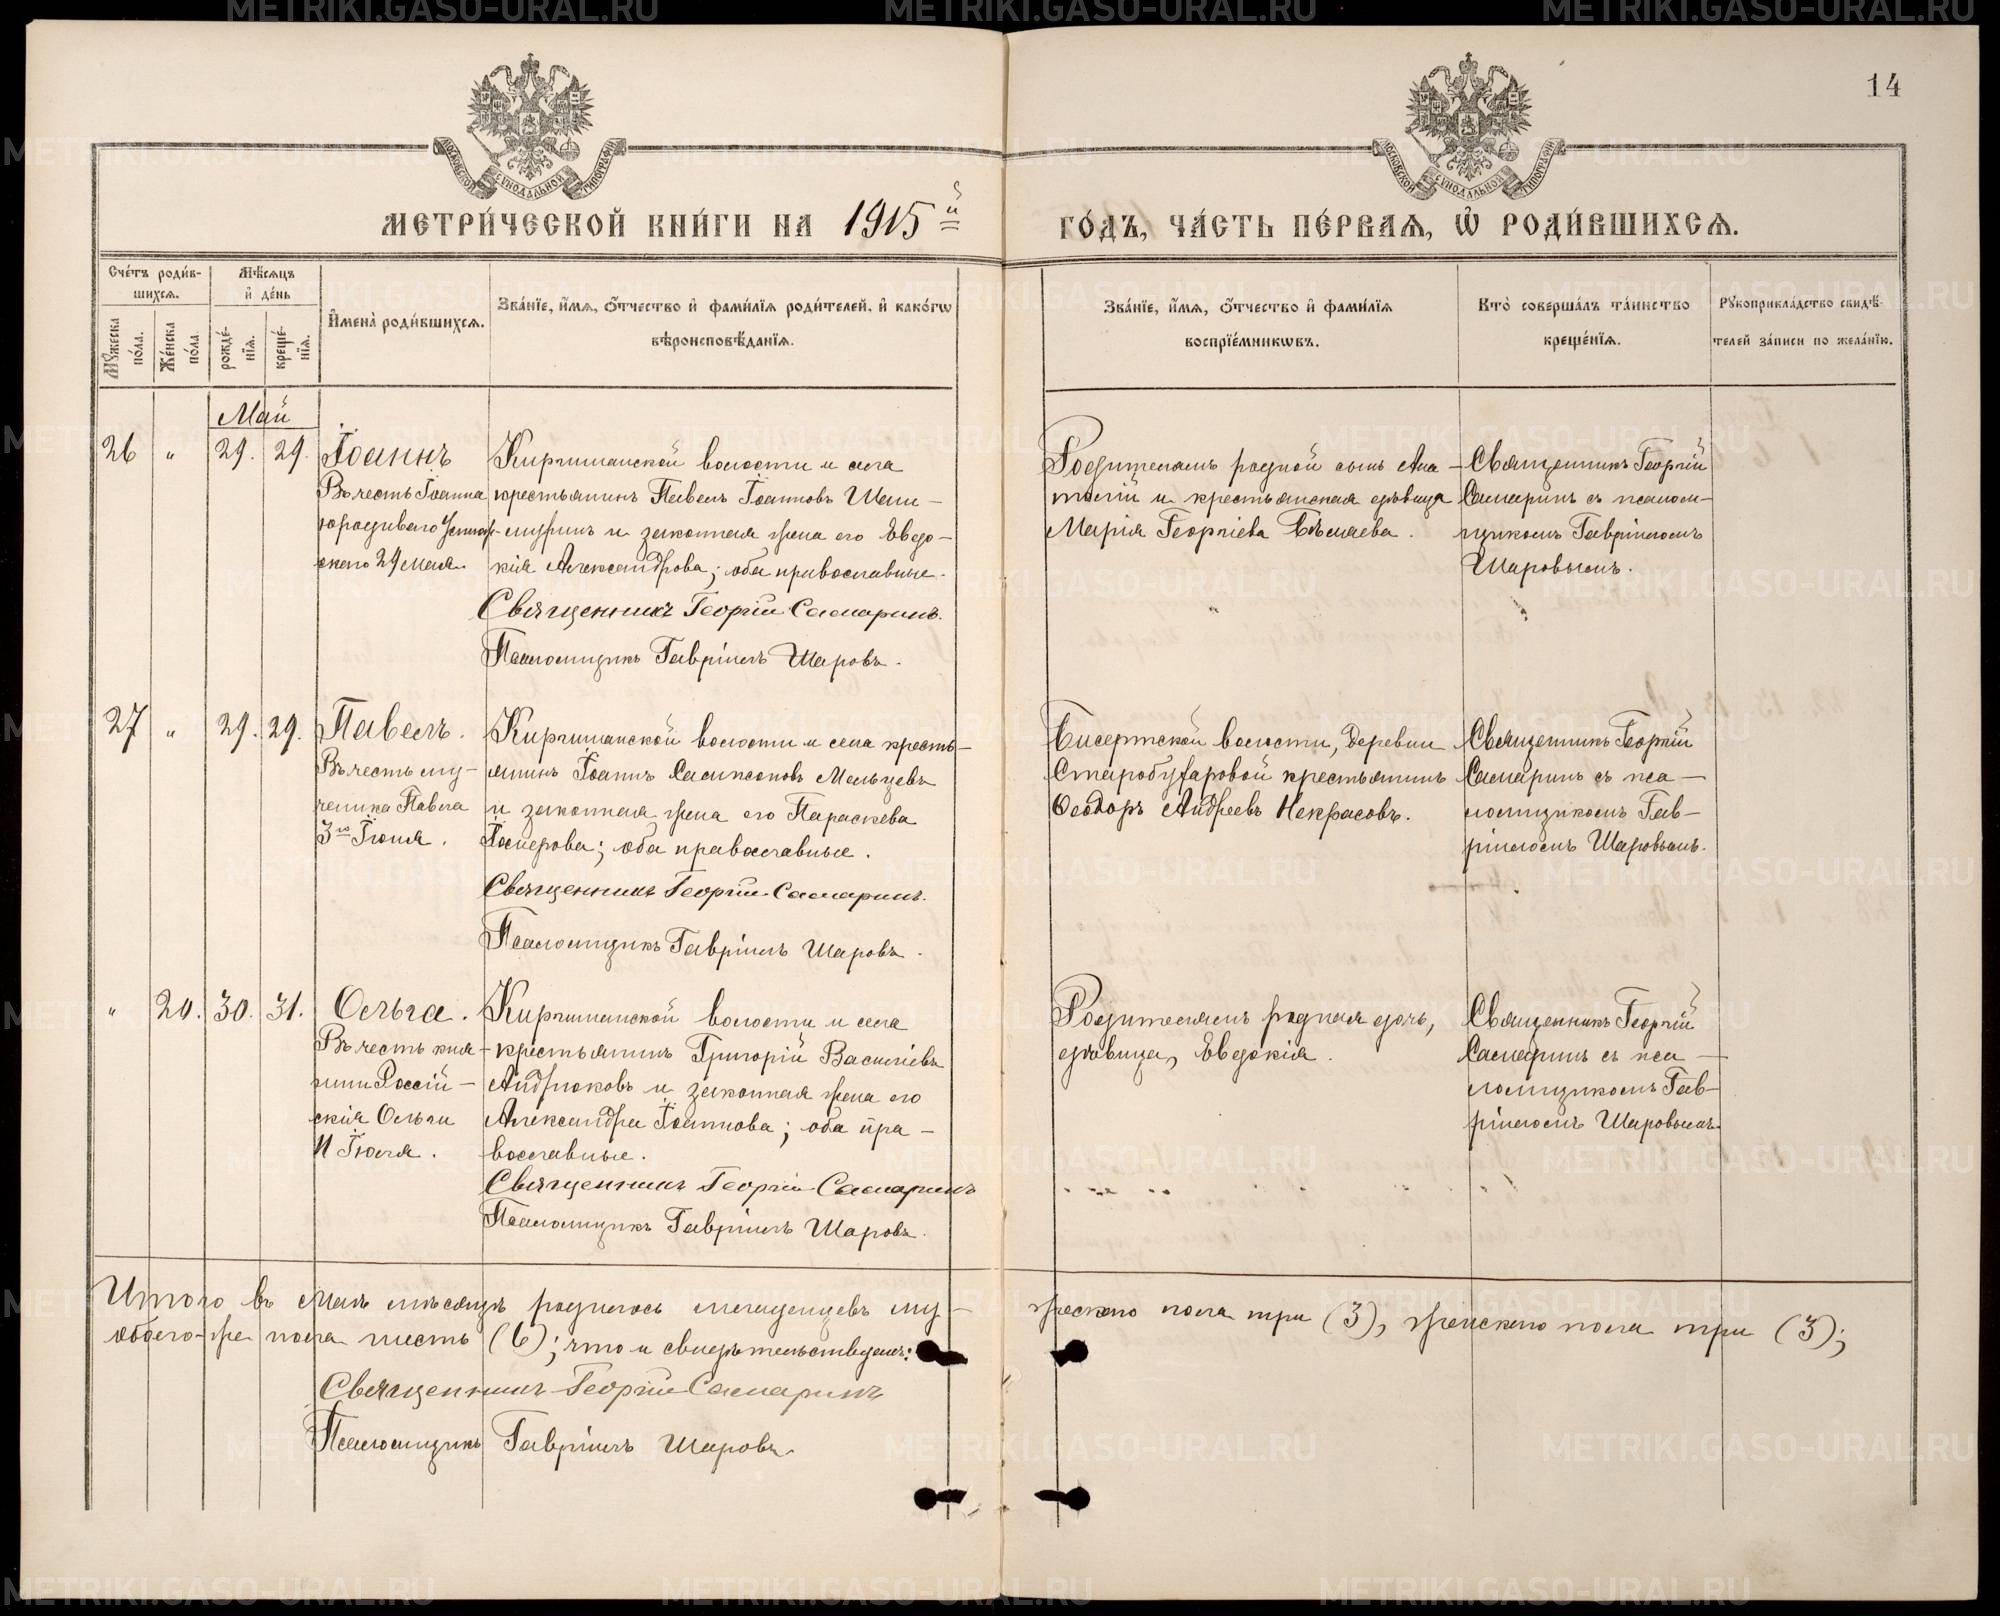 14
МЕТРИ́ЧЕСКОЙ КНИ́ГИ НА 1915й ГО́ДЪ, ЧА́СТЬ ПЕ́РВАѦ, Ѽ РОДИ́ВШИХСѦ.
МОСКОВСКОЙ СѴНОДАЛЬНОЙ ТИПОГРАФІИ
МОСКОВСКОЙ СѴНОДАЛЬНОЙ ТИПОГРАФІИ
Сче́тъ роди́в-
шихсѧ.
Мѣ́сѧцъ
и҆ де́нь
Мꙋ́жеска по́ла.
Же́нска по́ла.
рожде́-нїѧ.
креще́-нїѧ.
И҆мена̀ роди́вшихсѧ.
Зва́нїе, и҆́мѧ, ѻ҆́тчество и҆ фами́лїѧ роди́телей, и҆ како́гѡ
вѣроисповѣ́данїѧ.
Зва́нїе, и҆́мѧ, ѻ҆́тчество и҆ фами́лїѧ
воспрїе́мникѡвъ.
Кто̀ соверша́лъ та́инство
креще́нїѧ.
Рꙋкоприкла́дство свидѣ́-
телей за́писи по жела́нїю.
Май
26 " 29. 29.
Іоаннъ
Въ честь Іоанна
юродиваго Устюж-
скаго 29 мая.
Киргишанской волости и села
крестьянинъ Павелъ Іоанновъ Шаш-
мулинъ и законная жена его Евдо-
кія Александрова; оба православные.
Священникъ Георгій Самаринъ.
Псаломщикъ Гавріилъ Шаровъ.
Родителямъ родной сынъ Ана-
толій и крестьянская дѣвица
Марія Георгіева Бѣляева.
Священникъ Георгій
Самаринъ съ псалом-
щикомъ Гавріиломъ
Шаровымъ.
27 " 29. 29.
Павелъ.
Въ честь му-
ченика Павла
3го Іюня.
Киргишанской волости и села кресть-
янинъ Іоаннъ Самсоновъ Мальцевъ
и законная жена его Параскева
Іосифова; оба православные.
Священникъ Георгій Самаринъ.
Псаломщикъ Гавріилъ Шаровъ.
Бисертской волости, деревни
Старобухаровой крестьянинъ
Ѳеодоръ Андреевъ Некрасовъ.
Священникъ Георгій
Самаринъ съ пса-
ломщикомъ Гав-
ріиломъ Шаровымъ.
" 20. 30. 31.
Ольга.
Въ честь кня-
гини Россій-
скія Ольги
11 Іюля.
Киргишанской волости и села
крестьянинъ Григорій Василіевъ
Андрюковъ и законная жена его
Александра Іоаннова; оба пра-
вославные.
Священникъ Георгій Самаринъ
Псаломщикъ Гавріилъ Шаровъ.
Родителямъ родная дочь,
дѣвица, Евдокія.
Священникъ Георгій
Самаринъ съ пса-
ломщикомъ Гав-
ріиломъ Шаровымъ.
Итого въ Маѣ мѣсяцѣ родилось младенцевъ му-жескаго пола три (3), женскаго пола три (3);
обоего-же пола шесть (6); что и свидѣтельствуемъ:
Священникъ Георгій Самаринъ
Псаломщикъ Гавріилъ Шаровъ.
METRIKI.GASO-URAL.RU